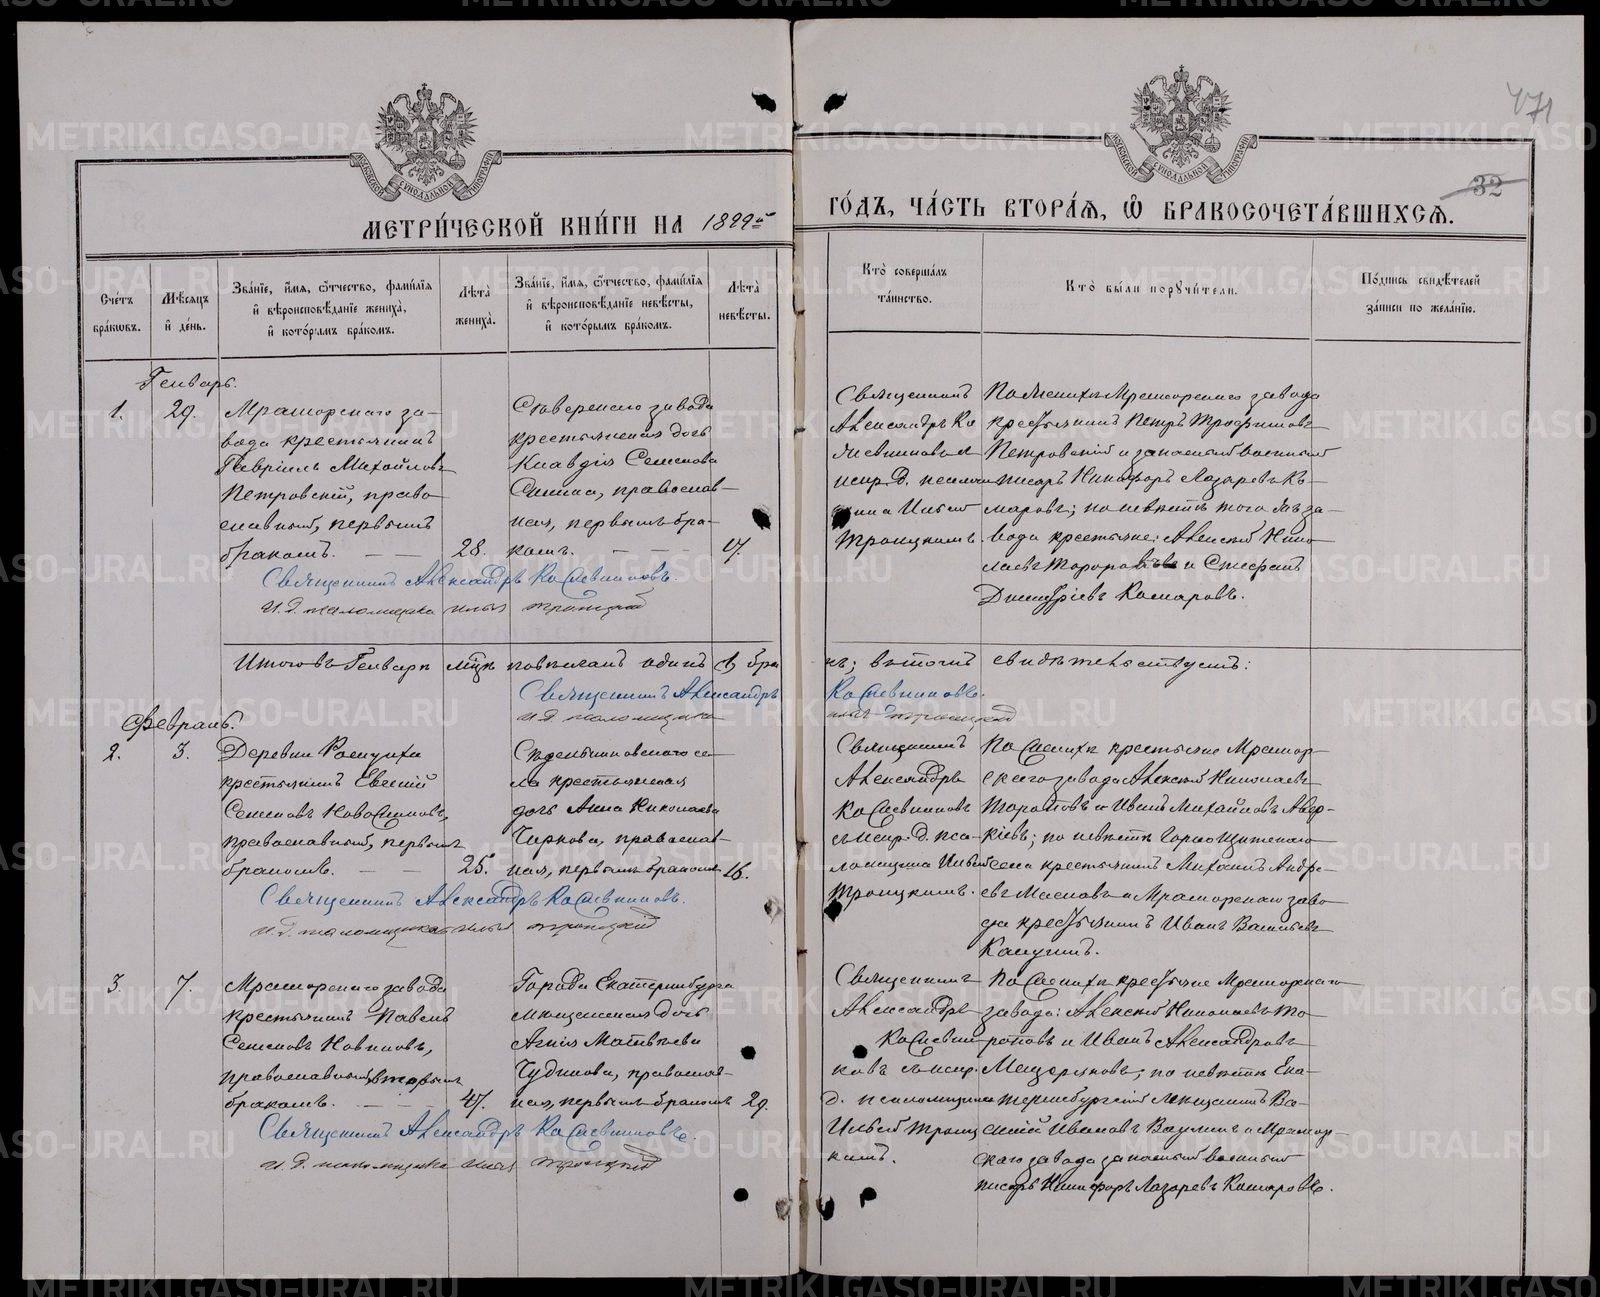 471
32
МЕТРИ́ЧЕСКОЙ КНИ́ГИ НА 1899й
ГО́ДЪ, ЧА́СТЬ ВТОРА́Я, Ѿ БРАКОСОЧЕТА́ВШИХСЯ.
Сче́тъ бра́кѡвъ.
Мѣ́сяцъ и҆ де́нь.
Зва́нїе, и҆́мя, ѻ҆́тчество, фами́лїя
и҆ вѣроисповѣ́данїе жениха̀,
и҆ кото́рымъ бра́комъ.
Лѣ́та̀ жениха̀.
Зва́нїе, и҆́мя, ѻ҆́тчество, фами́лїя
и҆ вѣроисповѣ́данїе невѣ́сты,
и҆ кото́рымъ бра́комъ.
Лѣ́та̀ невѣ́сты.
Кто̀ соверша́лъ
та́инство.
Кто̀ бы́ли порꙋчи́тели.
По́дпись свидѣ́телей
за́писи по жела́нїю.
Генварь.
1.
29.
Мраморскаго за-
вода крестьянинъ
Гавріилъ Михайловъ
Петровскій, право
славный, первымъ
бракомъ.
28.
Сѣверскаго завода
крестьянская дочь
Клавдія Семенова
православ-
ная, первымъ бра-
комъ.
17.
Священникъ
Александръ Ко
жевниковъ и
испр. д. псалом
щика Ильей
Троицкимъ.
По женихѣ Мраморскаго завода
крестьянинъ Петръ Трофимовъ
Петровскій и запасный военный
писарь Никифоръ Лазаревъ Ко-
маровъ; по невѣстѣ того жъ за-
вода крестьяне: Алексѣй Нико
лаевъ и Стефанъ
Димитріевъ Комаровъ.
Священникъ Александръ Кожевниковъ.
И. д. псаломщика Илья Троицкій
Итого въ Генварѣ мцѣ повѣнчанъ одинъ (1) бра
къ; въ томъ свидѣтельствуемъ:
Священникъ Александръ Кожевниковъ.
И. д. псаломщика Илья Троицкій
Февраль.
2.
3.
Деревни Раскуихи
крестьянинъ Евгеній
Семеновъ Новожиловъ,
православный, первымъ
бракомъ.
25.
Сѣдельниковскаго се-
ла крестьянская
дочь Анна Николаева
Чиркова, православ-
ная, первымъ бракомъ
16.
Священникъ
Александръ
Кожевниковъ
съ испр. д. пса-
ломщика Ильей
Троицкимъ.
По женихѣ крестьяне Мрамор-
скаго завода Алексѣй Николаевъ
и Иванъ Михайловъ Авер-
кіевъ; по невѣстѣ Горнощитскаго
села крестьянинъ Михаилъ Андре-
евъ Масловъ и Мраморскаго заво
да крестьянинъ Иванъ Васильевъ
Калугинъ.
Священникъ Александръ Кожевниковъ.
И. д. псаломщика Илья Троицкій
3.
7.
Мраморскаго завода
крестьянинъ Павелъ
Семеновъ Новиковъ,
православный, вторымъ
бракомъ.
47.
Города Екатеринбурга
мѣщанская дочь
Агнія Матвѣева
Чудинова, православ-
ная, первымъ бракомъ
29.
Священникъ
Александръ
Кожевни
ковъ съ испр.
д. псаломщика
Ильей Троиц
кимъ.
По женихѣ крестьяне Мраморскаго
завода: Алексѣй Николаевъ То
роповъ и Иванъ Александровъ
Мещеряковъ; по невѣстѣ Ека-
теринбургскій мѣщанинъ Ва-
силій Ивановъ и Мрамор-
скаго завода запасный военный
писарь Никифоръ Лазаревъ Комаровъ.
Священникъ Александръ Кожевниковъ.
И. д. псаломщика Илья Троицкій
METRIKI.GASO-URAL.RU